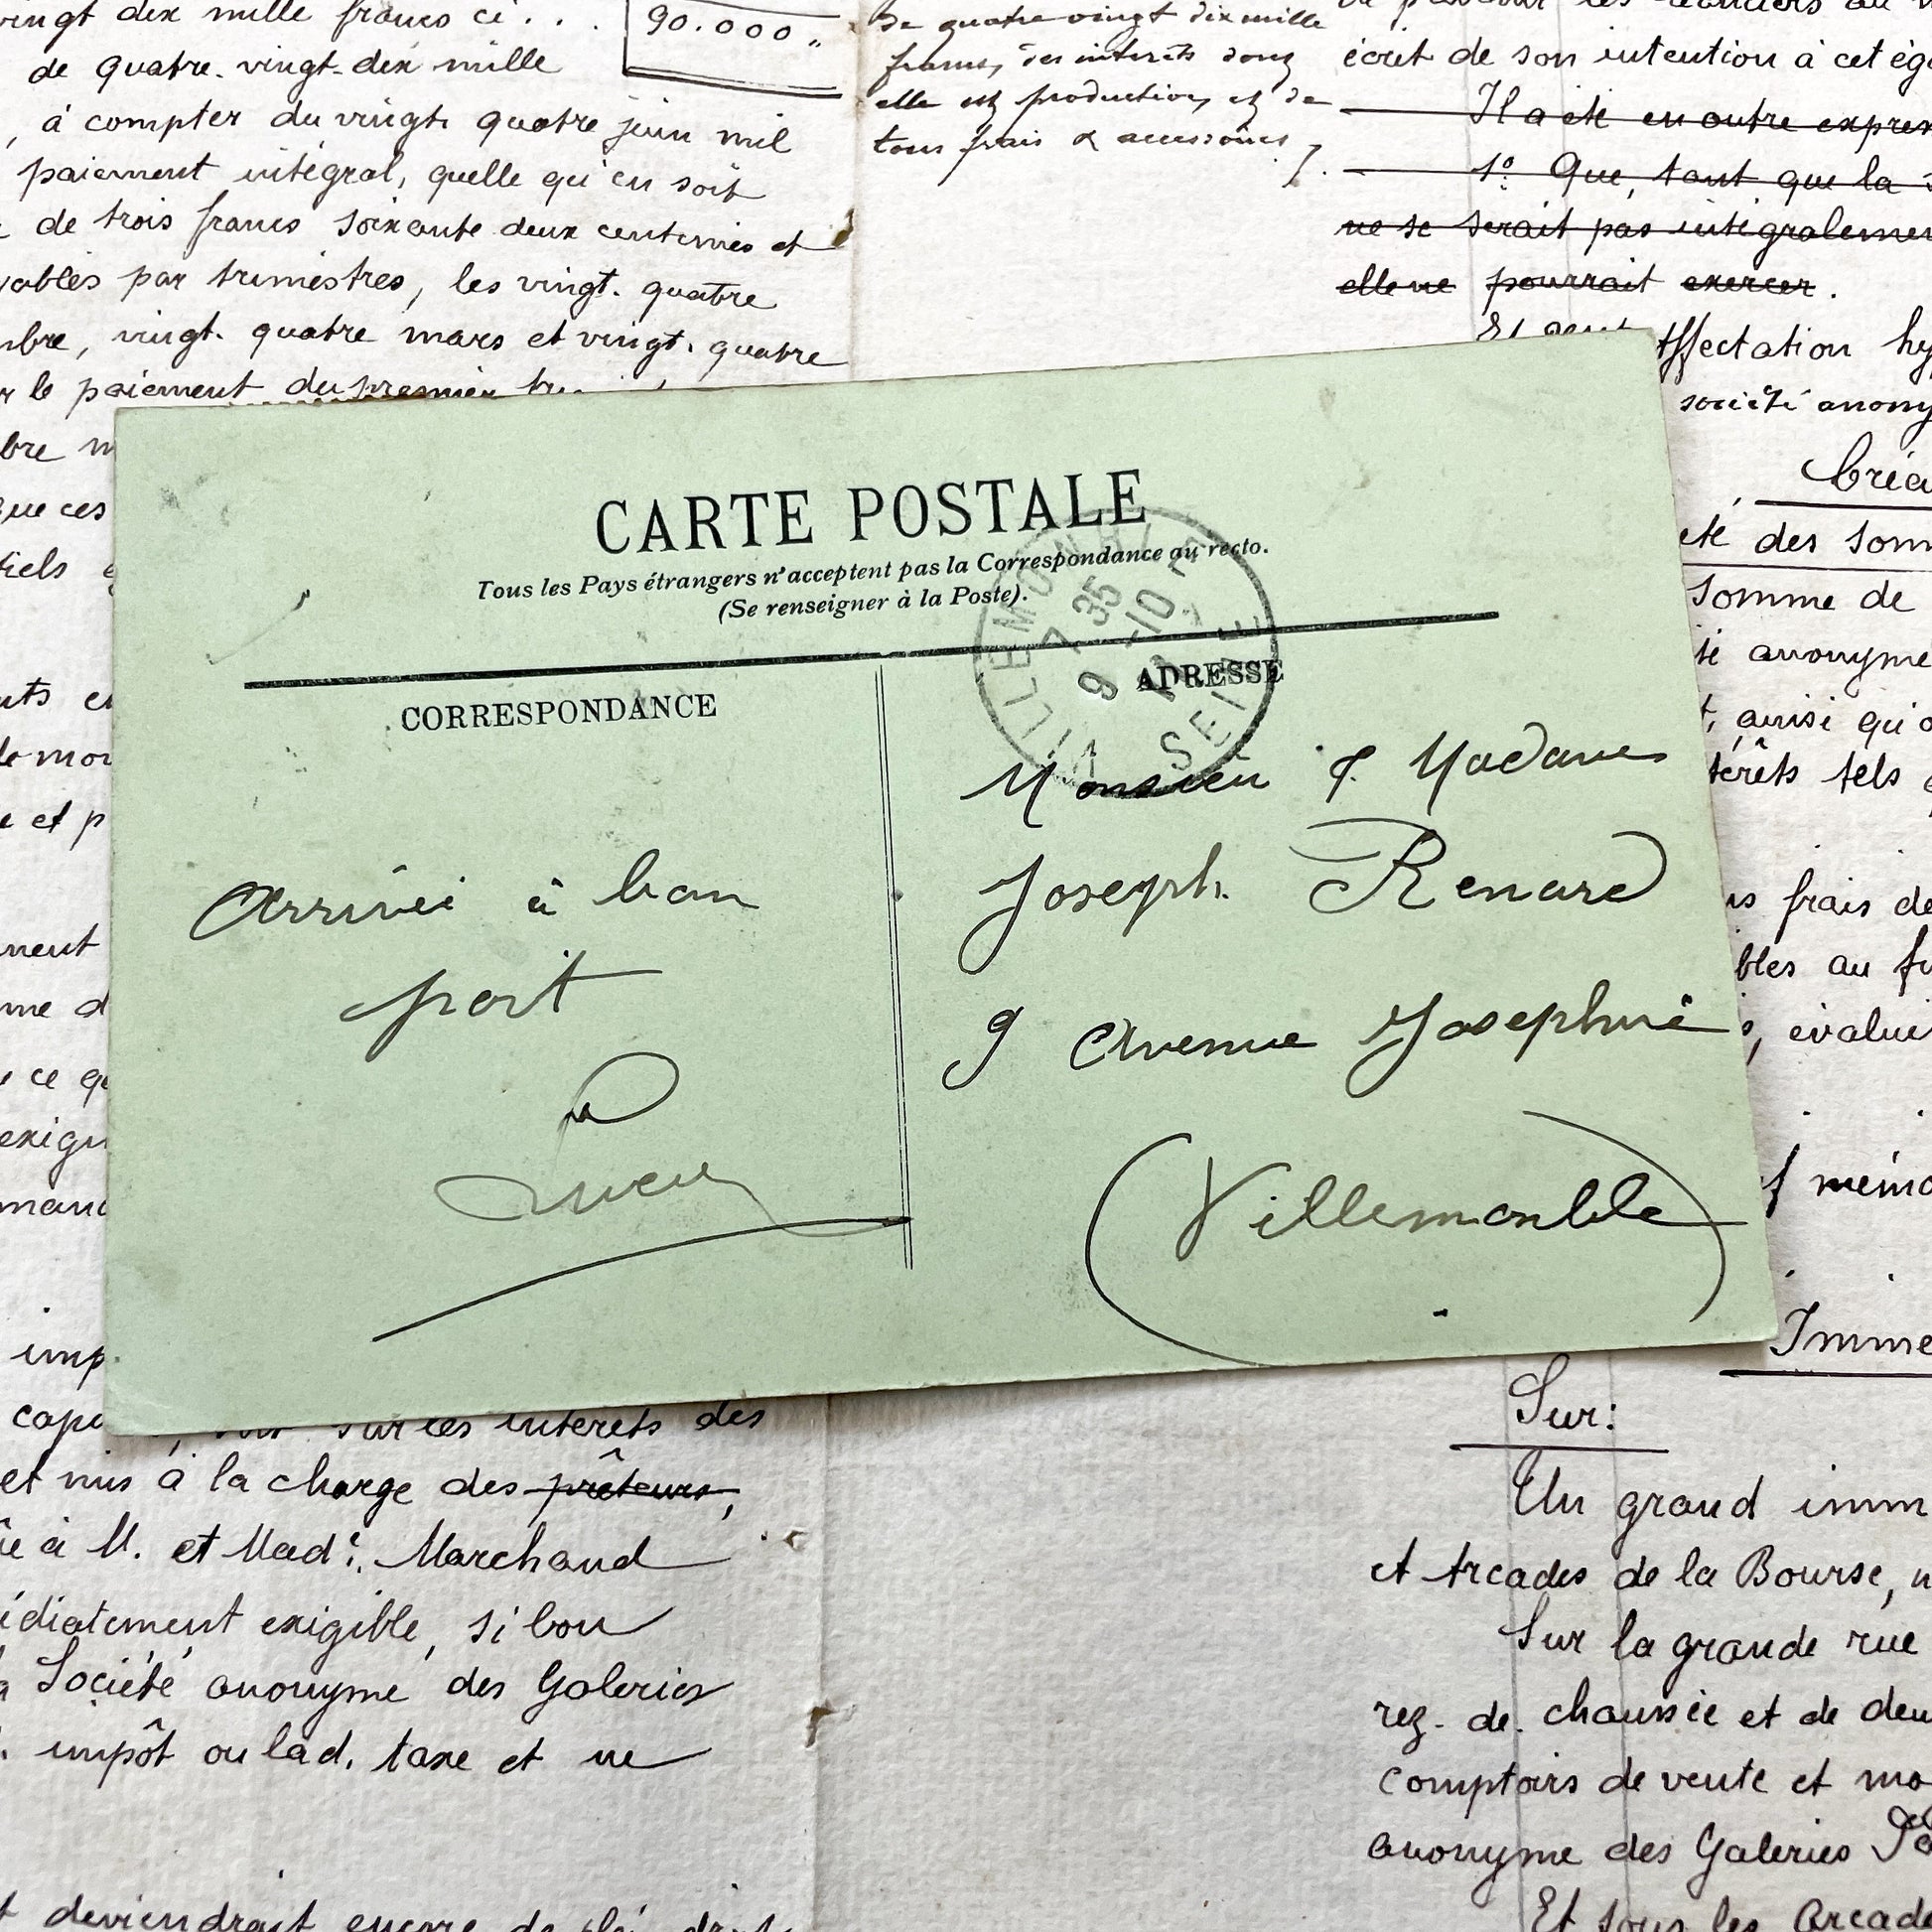 vingt dix mille francs ci . . .
90.000 „
de quatre-vingt-dix mille
, à compter du vingt quatre juin mil
paiement intégral, quelle qu'en soit
de trois francs soixante deux centimes et
yables par trimestres, les vingt-quatre
mbre, vingt-quatre mars et vingt-quatre
r le paiement du premier
bre m
que ces
tiels
nts en
et p
ment
me d
ce qu
exigi
mand
imp
de quatre vingt dix mille
francs, des intérêts dont
elle est production, et de
tous frais & accessoires
écrit de son intention à cet éga
Il a été en outre expres
1º Que, tant que la
ne se serait pas intégralemen
elle ne pourrait exercer.
affectation hy
société anony
Créa
été des som
somme de
té anonyme
, ainsi qu'
térêts tels
frais de
bles au fu
, évalué
mémo
CARTE POSTALE
Tous les Pays étrangers n'acceptent pas la Correspondance au recto.
(Se renseigner à la Poste).
VILLEMOMBLE
7 35
9 -10
SEINE
CORRESPONDANCE
ADRESSE
Arrivée à bon
port
Monsieur & Madame
Joseph Renard
9 Avenue Josephine
(Villemomble)
cap , sur les intérêts des
et mis à la charge des prêteurs,
à M. et Made. Marchand
édiatement exigible, si bon
Société anonyme des Galeries
impôt ou lad. taxe et ne
deviendrait encore de
Imme
Sur:
Un grand imm
et Arcades de la Bourse,
Sur la grande rue
rez-de-chaussée et de deu
comptoirs de vente et ma
anonyme des Galeries
Et sous les Arcade